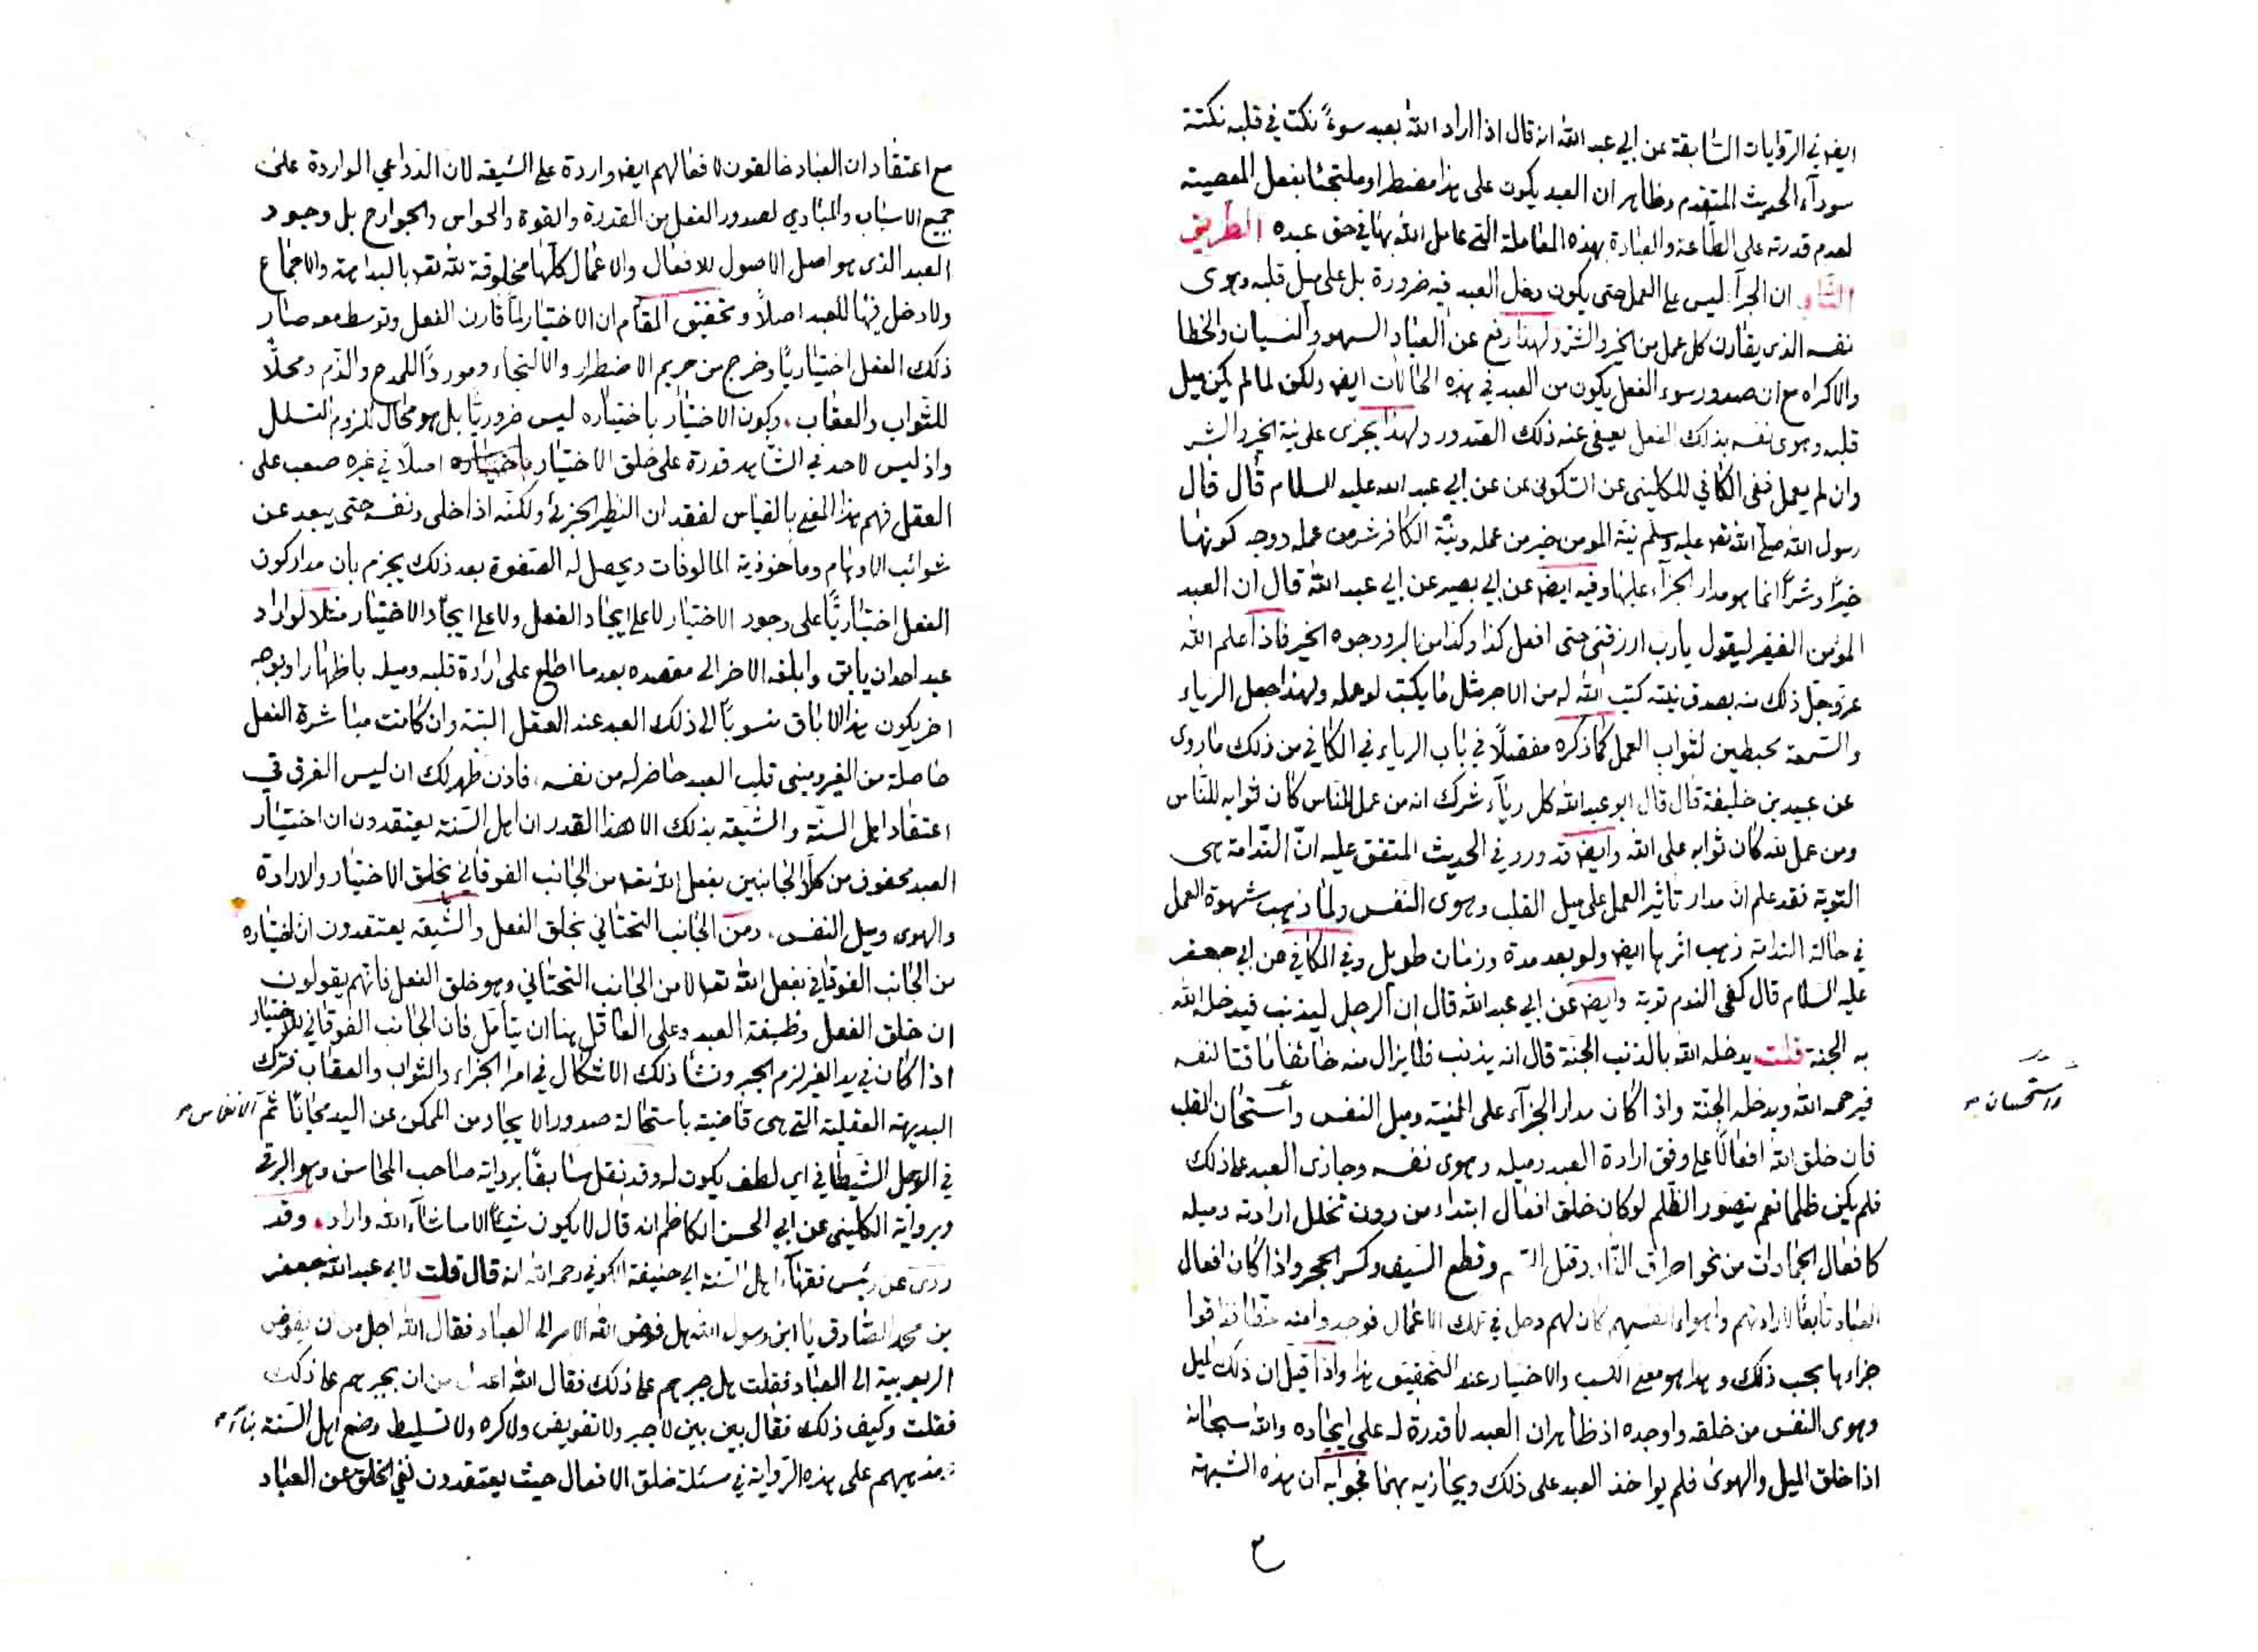 ايض في الروايات السابقة عن ابي عبد الله انه قال اذا اراد الله بعبد سوءً نكت في قلبه نكتة
سودآء الحديث المتقدم وظاهر ان العبد يكون على هذا مضطرا وملتجئا بفعل المعصية
لعدم قدرته على الطاعة والعبادة بهذه المعاملة التي عامل الله بها في حق عبده الطريق
الثاني ان الجزآء ليس على العمل حتى يكون دخل العبد فيه ضرورة بل على ميل قلبه وهوى
نفسه الذي يقارن كل عمل من الخير والشر ولهذا رفع عن العباد السهو والنسيان والخطا
والاكراه مع ان صدور سوء الفعل يكون من العبد في هذه الحالات ايض ولكن لما لم يكن ميل
قلبه وهوى نفسه بذلك الفعل يعفى عنه ذلك الصدور ولهذا يجزى على نية الخير والشر
وان لم يعمل ففي الكافي للكليني عن السكوني عن ابي عبد الله عليه السلام قال قال
رسول الله صلى الله تعه عليه وسلم نية المومن خير من عمله ونية الكافر شر من عمله ووجه كونها
خيرًا وشرًا انما هو مدار الجزآء عليها وفيه ايض عن ابي بصير عن ابي عبد الله قال ان العبد
المؤمن الفقير ليقول يا رب ارزقني حتى افعل كذا وكذا من البر ووجوه الخير فاذا علم الله
عزوجل ذلك منه بصدق نيته كتب الله له من الاجر مثل ما يكتب لو عمله ولهذا جعل الرياء
والسمعة محبطين لثواب العمل كما ذكره مفصلًا في باب الرياء في الكافي من ذلك ما روى
عن عبيد بن خليفة قال قال ابو عبد الله كل ريآء شرك انه من عمل للناس كان ثوابه للناس
ومن عمل لله كان ثوابه على الله وايض قد ورد في الحديث المتفق عليه انّ الندامة هى
التوبة فقد علم ان مدار تأثير العمل على ميل القلب وهوى النفس ولما ذهب شهوة العمل
في حالة الندامة ذهب اثرها ايض ولو بعد مدة وزمان طويل وفي الكافي عن ابي جعفر
عليه السلام قال كفى الندم توبة وايض عن ابي عبد الله قال ان الرجل ليذنب فيدخله الله
به الجنة قلت يدخله الله بالذنب الجنة قال انه يذنب فلا يزال منه خائفا ماقتا لنفسه
فيرحمه الله ويدخله الجنة واذا كان مدار الجزآء على النية وميل النفس وأستحسان القلب
واستحسان صح
فان خلق الله افعالًا على وفق ارادة العبد وميله وهوى نفسه وجازى العبد على ذلك
فلم يكن ظلما نعم يتصور الظلم لو كان خلق افعال ابتداء من دون تخلل ارادته وميله
كافعال الجمادات من نحو احراق النار وقتل السم وقطع السيف وكسر الحجر واذا كان افعال
العباد تابعًا لارادتهم واهواء انفسهم كان لهم دخل في تلك الاعمال فوجدوا منه حظا فذاقوا
جزاءها بحسب ذلك وهذا هو معنى الكسب والاختيار عند التحقيق هذا واذا قيل ان ذلك الميل
وهوى النفس من خلقه واوجده اذ ظاهر ان العبد لا قدرة له على ايجاده والله سبحانه
اذا خلق الميل والهوى فلم يواخذ العبد على ذلك ويجازيه بهما فجوابه ان هذه الشبهة
مع اعتقاد ان العباد خالقون لافعالهم ايض واردة على الشيعة لان الدواعي الواردة على
جميع الاسباب والمبادي لصدور الفعل من القدرة والقوة والحواس والجوارح بل وجود
العبد الذي هو اصل الاصول للافعال والاعمال كلها مخلوقة لله تعه بالبداهة والاجماع
ولا دخل فيها للعبد اصلًا وتحقيق المقام ان الاختيار لما قارن الفعل وتوسط معه صار
ذلك الفعل اختياريًا وخرج من حريم الاضطرار والالتجاء وموردًا للمدح والذم ومحلًا
للثواب والعقاب وكون الاختيار باختياره ليس ضروريًا بل هو محال للزوم التسلسل
واذ ليس لاحد في الشاهد قدرة على خلق الاختيار باختياره اصلًا في غيره صعب على
العقل فهم هذا المعنى بالقياس لفقدان النظير الجزئي ولكنه اذا خلى ونفسه حتى يبعد عن
شوائب الاوهام وماخوذية المالوفات ويحصل له الصفوة بعد ذلك يجزم بان مدار كون
الفعل اختياريًا على وجود الاختيار لا على ايجاد الفعل ولا على ايجاد الاختيار مثلا لو اراد
عبد احد ان يأبق وابلغه الاخر الى مقصده بعد ما اطلع على ارادة قلبه وميله باظهار او بوجه
اخر يكون هذا الاباق منسوبًا الى ذلك العبد عند العقل البتة وان كانت مباشرة الفعل
حاصلة من الغير ومبنى قلب العبد حاضر له من نفسه فاذن ظهر لك ان ليس الفرق في
اعتقاد اهل السنّة والشيعة بذلك الا هذا القدر ان اهل السّنة يعتقدون ان اختيار
العبد محفوف من كلا الجانبين بفعل الله تعه من الجانب الفوقاني بخلق الاختيار والارادة
والهوى وميل النفس ومن الجانب التحتاني بخلق الفعل والشيعة يعتقدون ان اختياره
من الجانب الفوقاني بفعل الله تعه لا من الجانب التحتاني وهو خلق الفعل فانهم يقولون
ان خلق الفعل وظيفة العبد وعلى العاقل هنا ان يتأمل فان الجانب الفوقاني للاختيار
اذا كان في يد الغير لزم الجبر ونشا ذلك الاشكال في امر الجزاء والثواب والعقاب فترك
البديهة العقلية التي هى قاضية باستحالة صدور الايجاد من الممكن عن اليد مجانًا ثم
الانغماس صح
في الوحل الشيطاني اي لطف يكون له وقد نقل سابقًا برواية صاحب المحاسن وهو البرقي
وبرواية الكليني عن ابي الحسن الكاظم انه قال لا يكون شيئًا الا ما شآء الله واراد وقد
روى عن رئيس فقهآء اهل السّنة ابي حنيفة الكوفي رحمه الله انه قال قلت لابي عبد الله جعفر
بن محمد الصّادق يا ابن رسول الله هل فوض الله الامر الى العباد فقال الله اجل من ان يفوض
الربوبية الى العباد فقلت هل جبرهم على ذلك فقال الله اعدل من ان يجبرهم على ذلك
فقلت وكيف ذلك فقال بين بين لا جبر ولا تفويض ولا كره ولا تسليط وضع اهل السّنة بنآء
مذهبهم على هذه الرواية في مسئلة خلق الافعال حيث يعتقدون نفي الخلق عن العباد